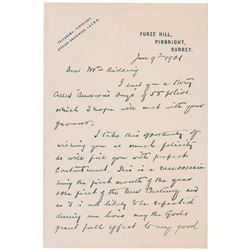 FURZE HILL,
PIRBRIGHT,
SURREY.
TELEGRAMS, PIRBRIGHT.
Jan 9th 1901
Dear Mrs Ridding
I send you a story
called Anson's Days of 55 folios
which I hope will met with your
favour.
I take this opportunity of
wishing you as much felicity
as will fill you with perfect
contentment. This is a
being the first month of the year
the first of the New Century and
as it is not likely to be repeated
during our lives may the Gods
grant full effect to my good